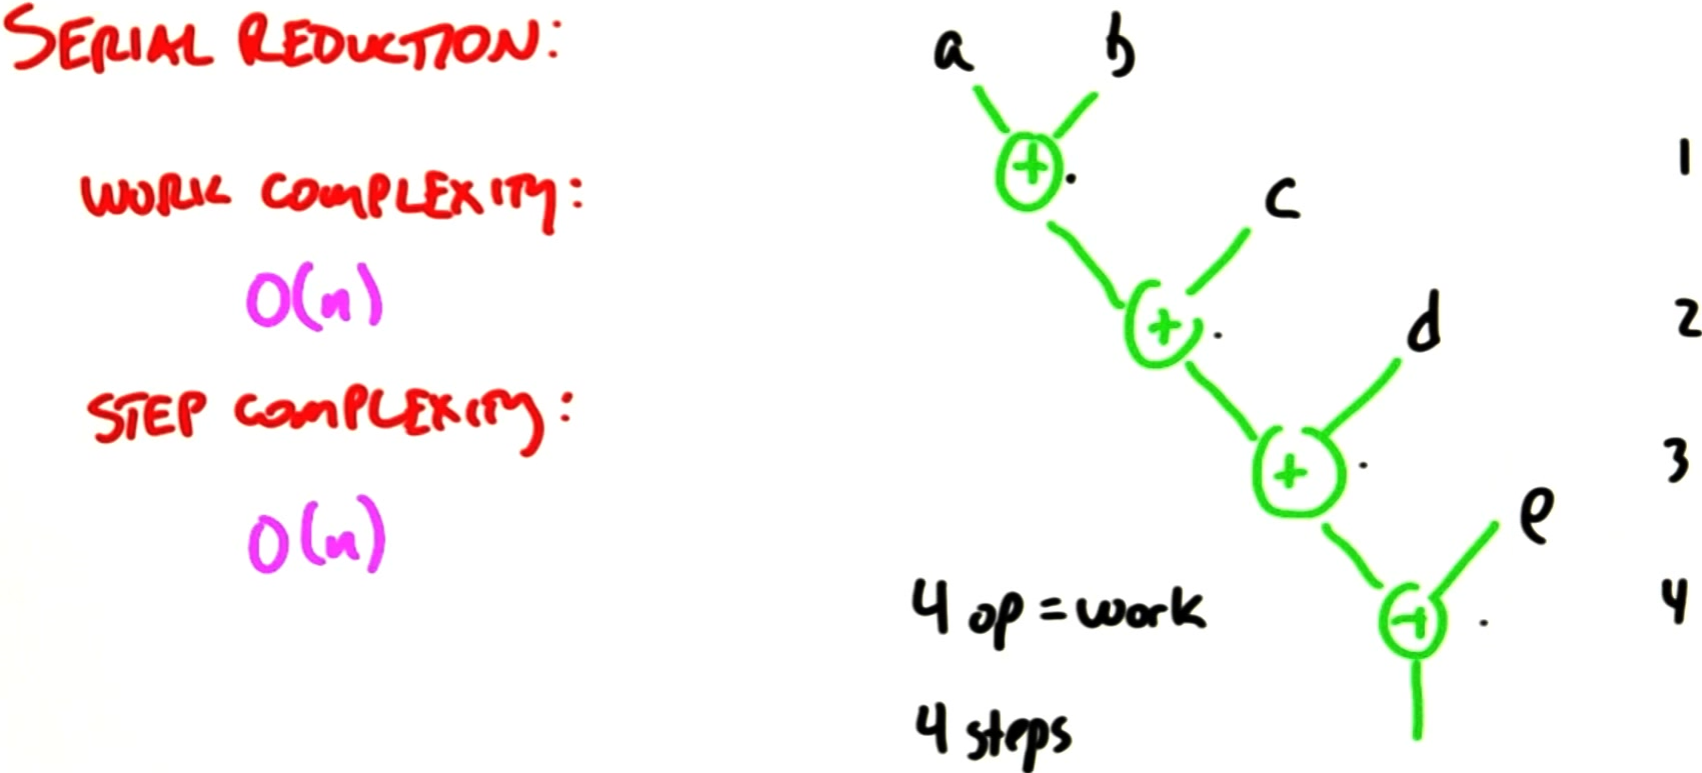 SERIAL REDUCTION:
WORK COMPLEXITY:
O(n)
STEP COMPLEXITY:
O(n)
a b
+
1
c
+
2
d
+
3
e
+
4
4 op = work
4 steps